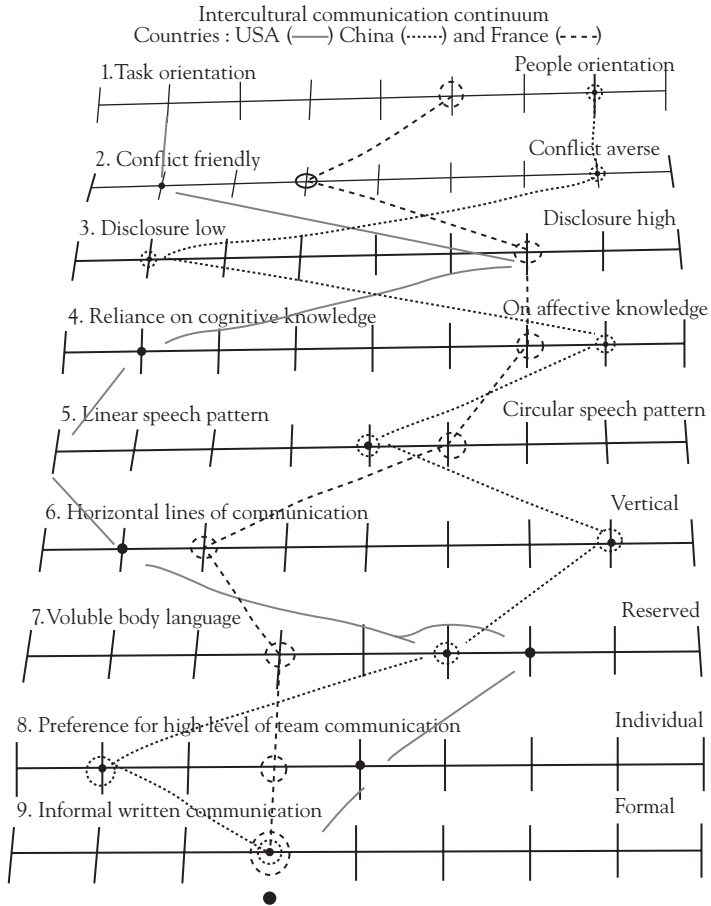 Intercultural communication continuum
Countries : USA (——) China (........) and France (----)
1.Task orientation People orientation
2. Conflict friendly Conflict averse
3. Disclosure low Disclosure high
4. Reliance on cognitive knowledge On affective knowledge
5. Linear speech pattern Circular speech pattern
6. Horizontal lines of communication Vertical
7.Voluble body language Reserved
8. Preference for high level of team communication Individual
9. Informal written communication Formal